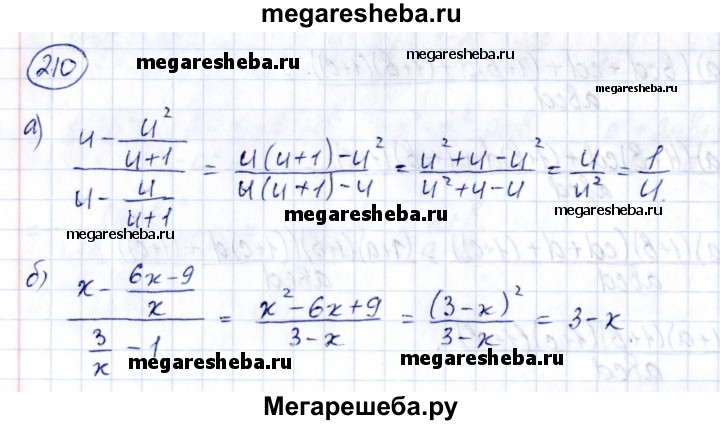 megaresheba.ru
210
megaresheba.ru
megaresheba.ru
megaresheba.ru
а) (u - u²/(u+1)) / (u - u/(u+1)) = (u(u+1) - u²) / (u(u+1) - u) = (u² + u - u²) / (u² + u - u) = u/u² = 1/u.
megaresheba.ru
megaresheba.ru
б) (x - (6x-9)/x) / (3/x - 1) = (x² - 6x + 9) / (3-x) = (3-x)² / (3-x) = 3-x
megaresheba.ru
megaresheba.ru
Мегарешеба.ру